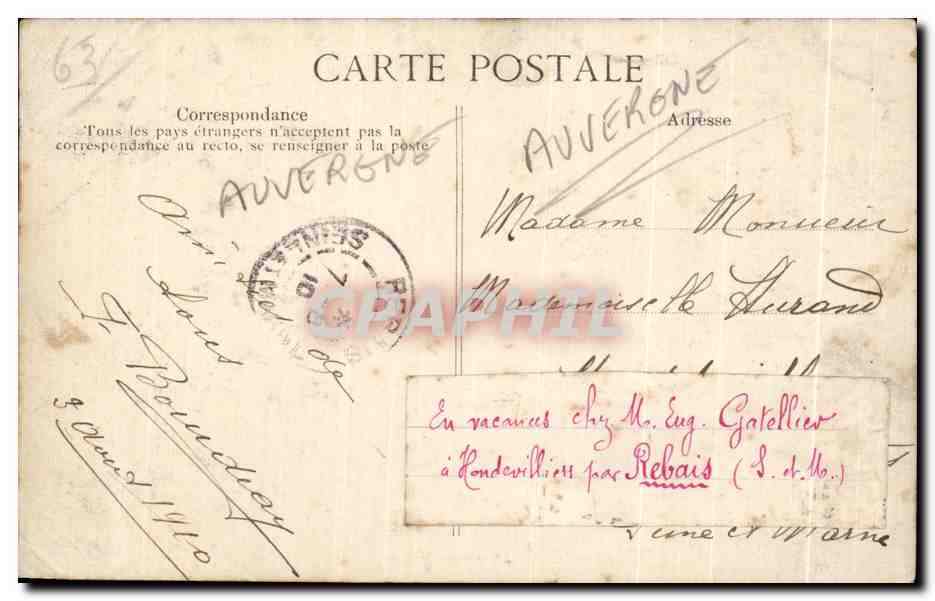 63
CARTE POSTALE
Correspondance
Tous les pays étrangers n'acceptent pas la
correspondance au recto, se renseigner à la poste
AUVERGNE
Amitiés de
tous
3 août 1910
REBAIS
SEINE ET M
7
10
CPAPHIL
AUVERGNE
Adresse
Madame Monsieur
Mademoiselle Durand
En vacances chez M. Eug. Gatellier
à Hondevilliers par Rebais (S. et M.)
Seine et Marne